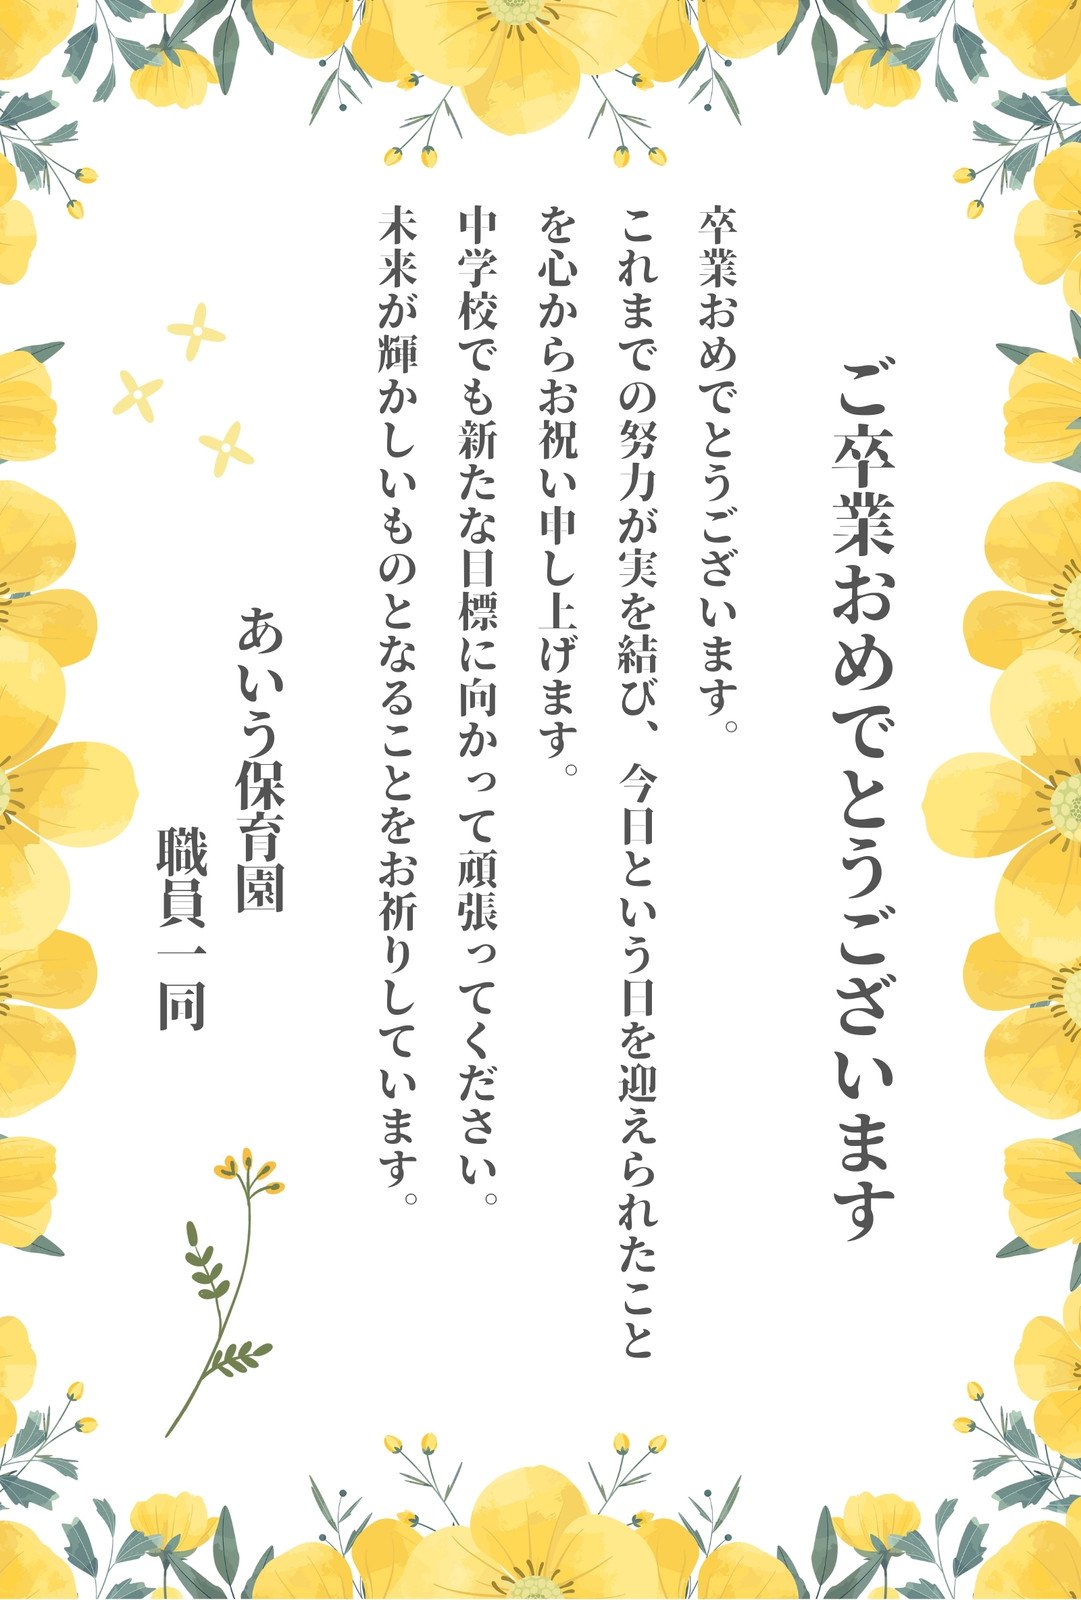 ご卒業おめでとうございます
卒業おめでとうございます。
これまでの努力が実を結び、今日という日を迎えられたこと
を心からお祝い申し上げます。
中学校でも新たな目標に向かって頑張ってください。
未来が輝かしいものとなることをお祈りしています。
あいう保育園
職員一同